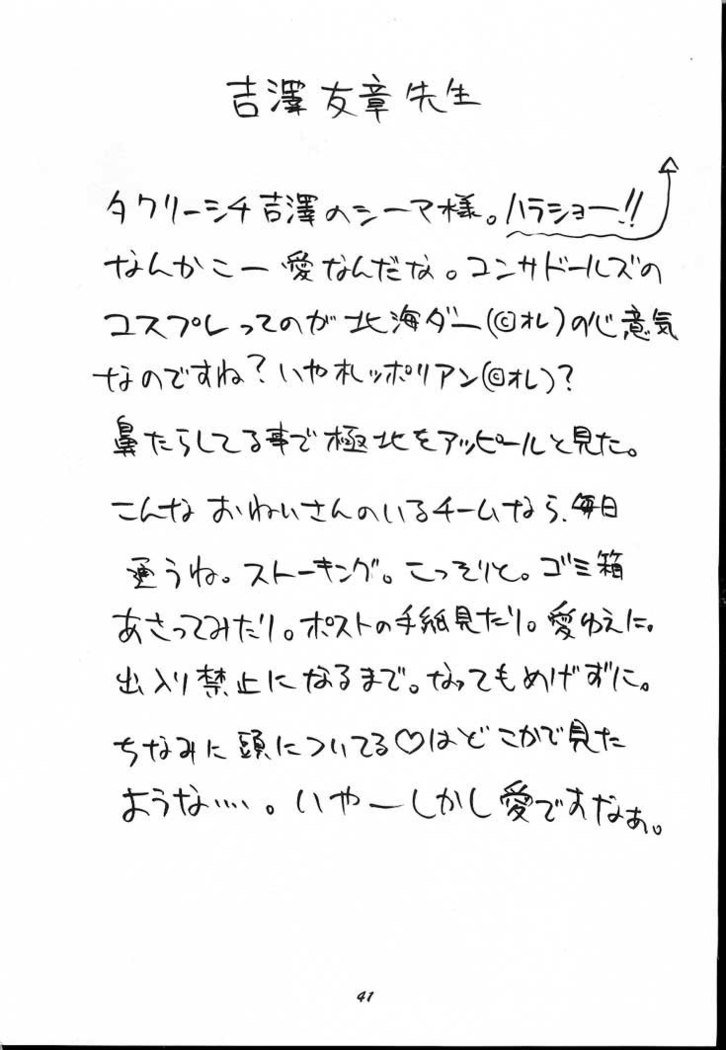 吉澤友章先生
タクリーシチ吉澤のシーマ様。ハラショー!!
なんかこー愛なんだな。コンサドールズの
コスプレってのが北海ダー(©オレ)の心意気
なのですね?いや札ッポリアン(©オレ)?
鼻たらしてる事で極北をアッピールと見た。
こんなおねいさんのいるチームなら、毎日
通うね。ストーキング。こっそりと。ゴミ箱
あさってみたり。ポストの手紙見たり。愛ゆえに。
出入り禁止になるまで。なってもめげずに。
ちなみに頭についてる♡はどこかで見た
ような‥‥。いやーしかし愛ですなぁ。
41